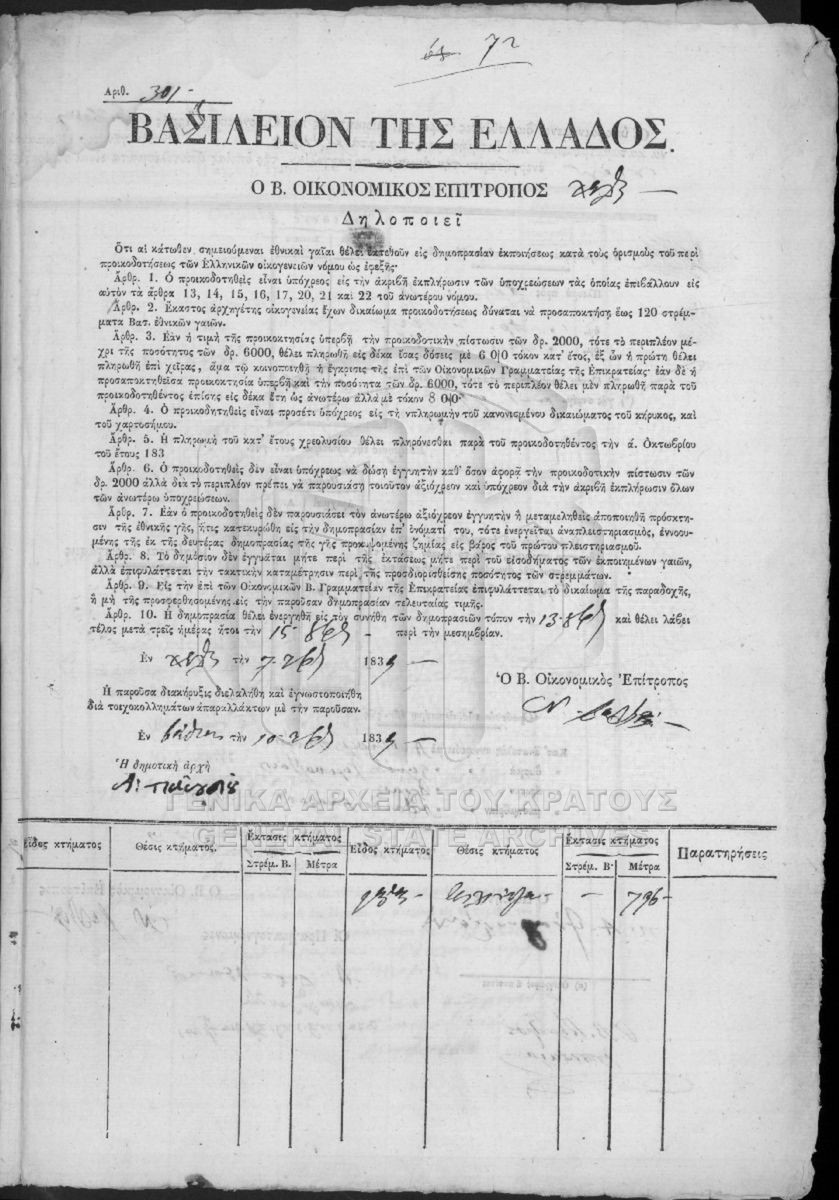 72
Αριθ. 301
ΒΑΣΙΛΕΙΟΝ ΤΗΣ ΕΛΛΑΔΟΣ.
Ο Β. ΟΙΚΟΝΟΜΙΚΟΣ ΕΠΙΤΡΟΠΟΣ
Δηλοποιεῖ
Ὅτι αἱ κάτωθεν σημειούμεναι ἐθνικαὶ γαῖαι θέλει ἐκτεθοῦν εἰς δημοπρασίαν ἐκποιήσεως κατὰ τοὺς ὁρισμοὺς τοῦ περὶ
προικοδοτήσεως τῶν Ἑλληνικῶν οἰκογενειῶν νόμου ὡς ἐφεξῆς·
Ἄρθρ. 1. Ὁ προικοδοτηθεὶς εἶναι ὑπόχρεος εἰς τὴν ἀκριβῆ ἐκπλήρωσιν τῶν ὑποχρεώσεων τὰς ὁποίας ἐπιβάλλουν εἰς
αὐτὸν τὰ ἄρθρα 13, 14, 15, 16, 17, 20, 21 καὶ 22 τοῦ ἀνωτέρου νόμου.
Ἄρθρ. 2. Ἕκαστος ἀρχηγέτης οἰκογενείας ἔχων δικαίωμα προικοδοτήσεως δύναται νὰ προσαποκτήσῃ ἕως 120 στρέμ-
ματα Βασ. ἐθνικῶν γαιῶν.
Ἄρθρ. 3. Ἐὰν ἡ τιμὴ τῆς προικοκτησίας ὑπερβῇ τὴν προικοδοτικὴν πίστωσιν τῶν δρ. 2000, τότε τὸ περιπλέον μέ-
χρι τῆς ποσότητος τῶν δρ. 6000, θέλει πληρωθῆ εἰς δέκα ἴσας δόσεις μὲ 6 0|0 τόκον κατ' ἔτος, ἐξ ὧν ἡ πρώτη θέλει
πληρωθῆ ἐπὶ χεῖρας, ἅμα τῷ κοινοποιηθῇ ἡ ἔγκρισις τῆς ἐπὶ τῶν Οἰκονομικῶν Γραμματείας τῆς Ἐπικρατείας· ἐὰν δὲ ἡ
προσαποκτηθεῖσα προικοκτησία ὑπερβῇ καὶ τὴν ποσότητα τῶν δρ. 6000, τότε τὸ περιπλέον θέλει μὲν πληρωθῆ παρὰ τοῦ
προικοδοτηθέντος ἐπίσης εἰς δέκα ἔτη ὡς ἀνωτέρω ἀλλὰ μὲ τόκον 8 0|0·
Ἄρθρ. 4. Ὁ προικοδητηθεὶς εἶναι προσέτι ὑπόχρεος εἰς τὴν πληρωμὴν τοῦ κανονισμένου δικαιώματος τοῦ κήρυκος, καὶ
τοῦ χαρτοσήμου.
Ἄρθρ. 5. Ἡ πληρωμὴ τοῦ κατ' ἔτους χρεολυσίου θέλει πληρόνεσθαι παρὰ τοῦ προικοδοτηθέντος τὴν ά. Ὀκτωβρίου
τοῦ ἔτους 183
Ἄρθρ. 6. Ὁ προικοδοτηθεὶς δὲν εἶναι ὑπόχρεως νὰ δώσῃ ἐγγυητὴν καθ' ὅσον ἀφορᾷ τὴν προικοδοτικὴν πίστωσιν τῶν
δρ. 2000 ἀλλὰ διὰ τὸ περιπλέον πρέπει νὰ παρουσιάσῃ τοιοῦτον ἀξιόχρεον καὶ ὑπόχρεον διὰ τὴν ἀκριβῆ ἐκπλήρωσιν ὅλων
τῶν ἀνωτέρω ὑποχρεώσεων.
Ἄρθρ. 7. Ἐὰν ὁ προικοδοτηθεὶς δὲν παρουσιάσει τὸν ἀνωτέρω ἀξιόχρεον ἐγγυητὴν ἢ μεταμεληθεὶς ἀποποιηθῇ πρόσκτη-
σιν τῆς ἐθνικῆς γῆς, ἥτις κατεκυρώθη εἰς τὴν δημοπρασίαν ἐπ' ὀνόματί του, τότε ἐνεργεῖται ἀναπλειστηριασμὸς, ἐννοου-
μένης τῆς ἐκ τῆς δευτέρας δημοπρασίας τῆς γῆς προκυψομένης ζημίας εἰς βάρος τοῦ πρώτου πλειστηριασμοῦ.
Ἄρθρ. 8. Τὸ δημόσιον δὲν ἐγγυᾶται μήτε περὶ τῆς ἐκτάσεως μήτε περὶ τοῦ εἰσοδήματος τῶν ἐκποιημένων γαιῶν,
ἀλλὰ ἐπιφυλάττεται τὴν τακτικὴν καταμέτρησιν περὶ τῆς προσδιορισθείσης ποσότητος τῶν στρεμμάτων.
Ἄρθρ. 9. Εἰς τὴν ἐπὶ τῶν Οἰκονομικῶν Β. Γραμματείαν τῆς Ἐπικρατείας ἐπιφυλάττεται τὸ δικαίωμα τῆς παραδοχῆς,
ἢ μὴ τῆς προσφερθησομένης εἰς τὴν παροῦσαν δημοπρασίαν τελευταίας τιμῆς.
Ἄρθρ. 10. Ἡ δημοπρασία θέλει ἐνεργηθῆ εἰς τὸν συνήθη τῶν δημοπρασιῶν τόπον τὴν 13 καὶ θέλει λάβει
τέλος μετὰ τρεῖς ἡμέρας ἤτοι τὴν 15 περὶ τὴν μεσημβρίαν.
Ἐν τὴν 7 1839
Ὁ Β. Οἰκονομικὸς Ἐπίτροπος
Ἡ παροῦσα διακήρυξις διελαλήθη καὶ ἐγνωστοποιήθη
διὰ τοιχοκολλημάτων ἀπαραλλάκτων μὲ τὴν παροῦσαν.
Ἐν τὴν 10 1839
Ἡ δημοτικὴ ἀρχὴ
ΓΕΝΙΚΑ ΑΡΧΕΙΑ ΤΟΥ ΚΡΑΤΟΥΣ
GENERAL STATE ARCHIVES
Εἶδος κτήματος Θέσις κτήματος. Ἔκτασις κτήματος Εἶδος κτήματος Θέσις κτήματος Ἔκτασις κτήματος Παρατηρήσεις
Στρέμ. Β. Μέτρα Στρέμ. Β· Μέτρα
796